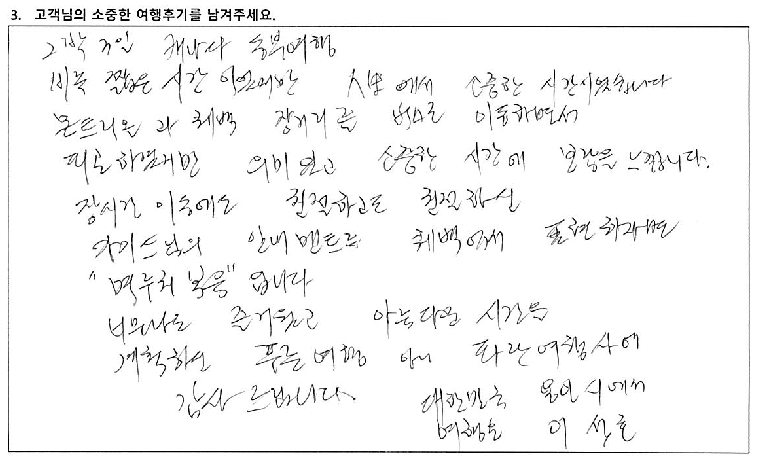 3. 고객님의 소중한 여행후기를 남겨주세요.
2박 3일 캐나다 동부여행
비록 짧은 시간 이었지만 人生에서 소중한 시간이었습니다
몬트리올 과 퀘백 장거리를 버스로 이동하면서
피곤하였지만 의미있고 소중한 시간에 보람을 느낍니다.
장시간 이동에도 친절하고도 친절하신
가이드님의 안내멘트로 퀘백에서 표현하자면
" 복음" 입니다
너무나도 즐거웠고 아름다운 시간을
계획하신 푸른여행 아니 파란여행사에
감사 드립니다.
대한민국 용인시에서
여행온 이